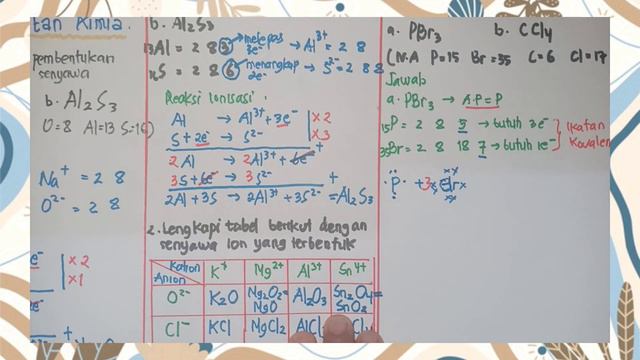 tan Kimia.
pembentukan
senyawa
b. Al2S3
O=8 Al=13 S=16)
Na+ = 2 8
O2- = 2 8
e- | x2
| x1
b. Al2S3
13Al = 2 8 3 → melepas 3e- → Al3+ = 2 8
16S = 2 8 6 → menangkap 2e- → S2- = 2 8 8
Reaksi Ionisasi :
Al → Al3+ + 3e- | x2
S + 2e- → S2- | x3
2Al → 2Al3+ + 6e-
3S + 6e- → 3S2- +
2Al + 3S → 2Al3+ + 3S2- = Al2S3
2. Lengkapi tabel berikut dengan
senyawa ion yang terbentuk
Kation Anion K+ Mg2+ Al3+ Sn4+
O2- K2O Mg2O2= MgO Al2O3 Sn2O4= SnO2
Cl- KCl MgCl2 AlCl
a. PBr3 b. CCl4
(N.A P=15 Br=35 C=6 Cl=17
Jawab
a. PBr3 → A.P=P
15P = 2 8 5 → butuh 3e-
35Br = 2 8 18 7 → butuh 1e-
Ikatan
Kovalen
P + 3